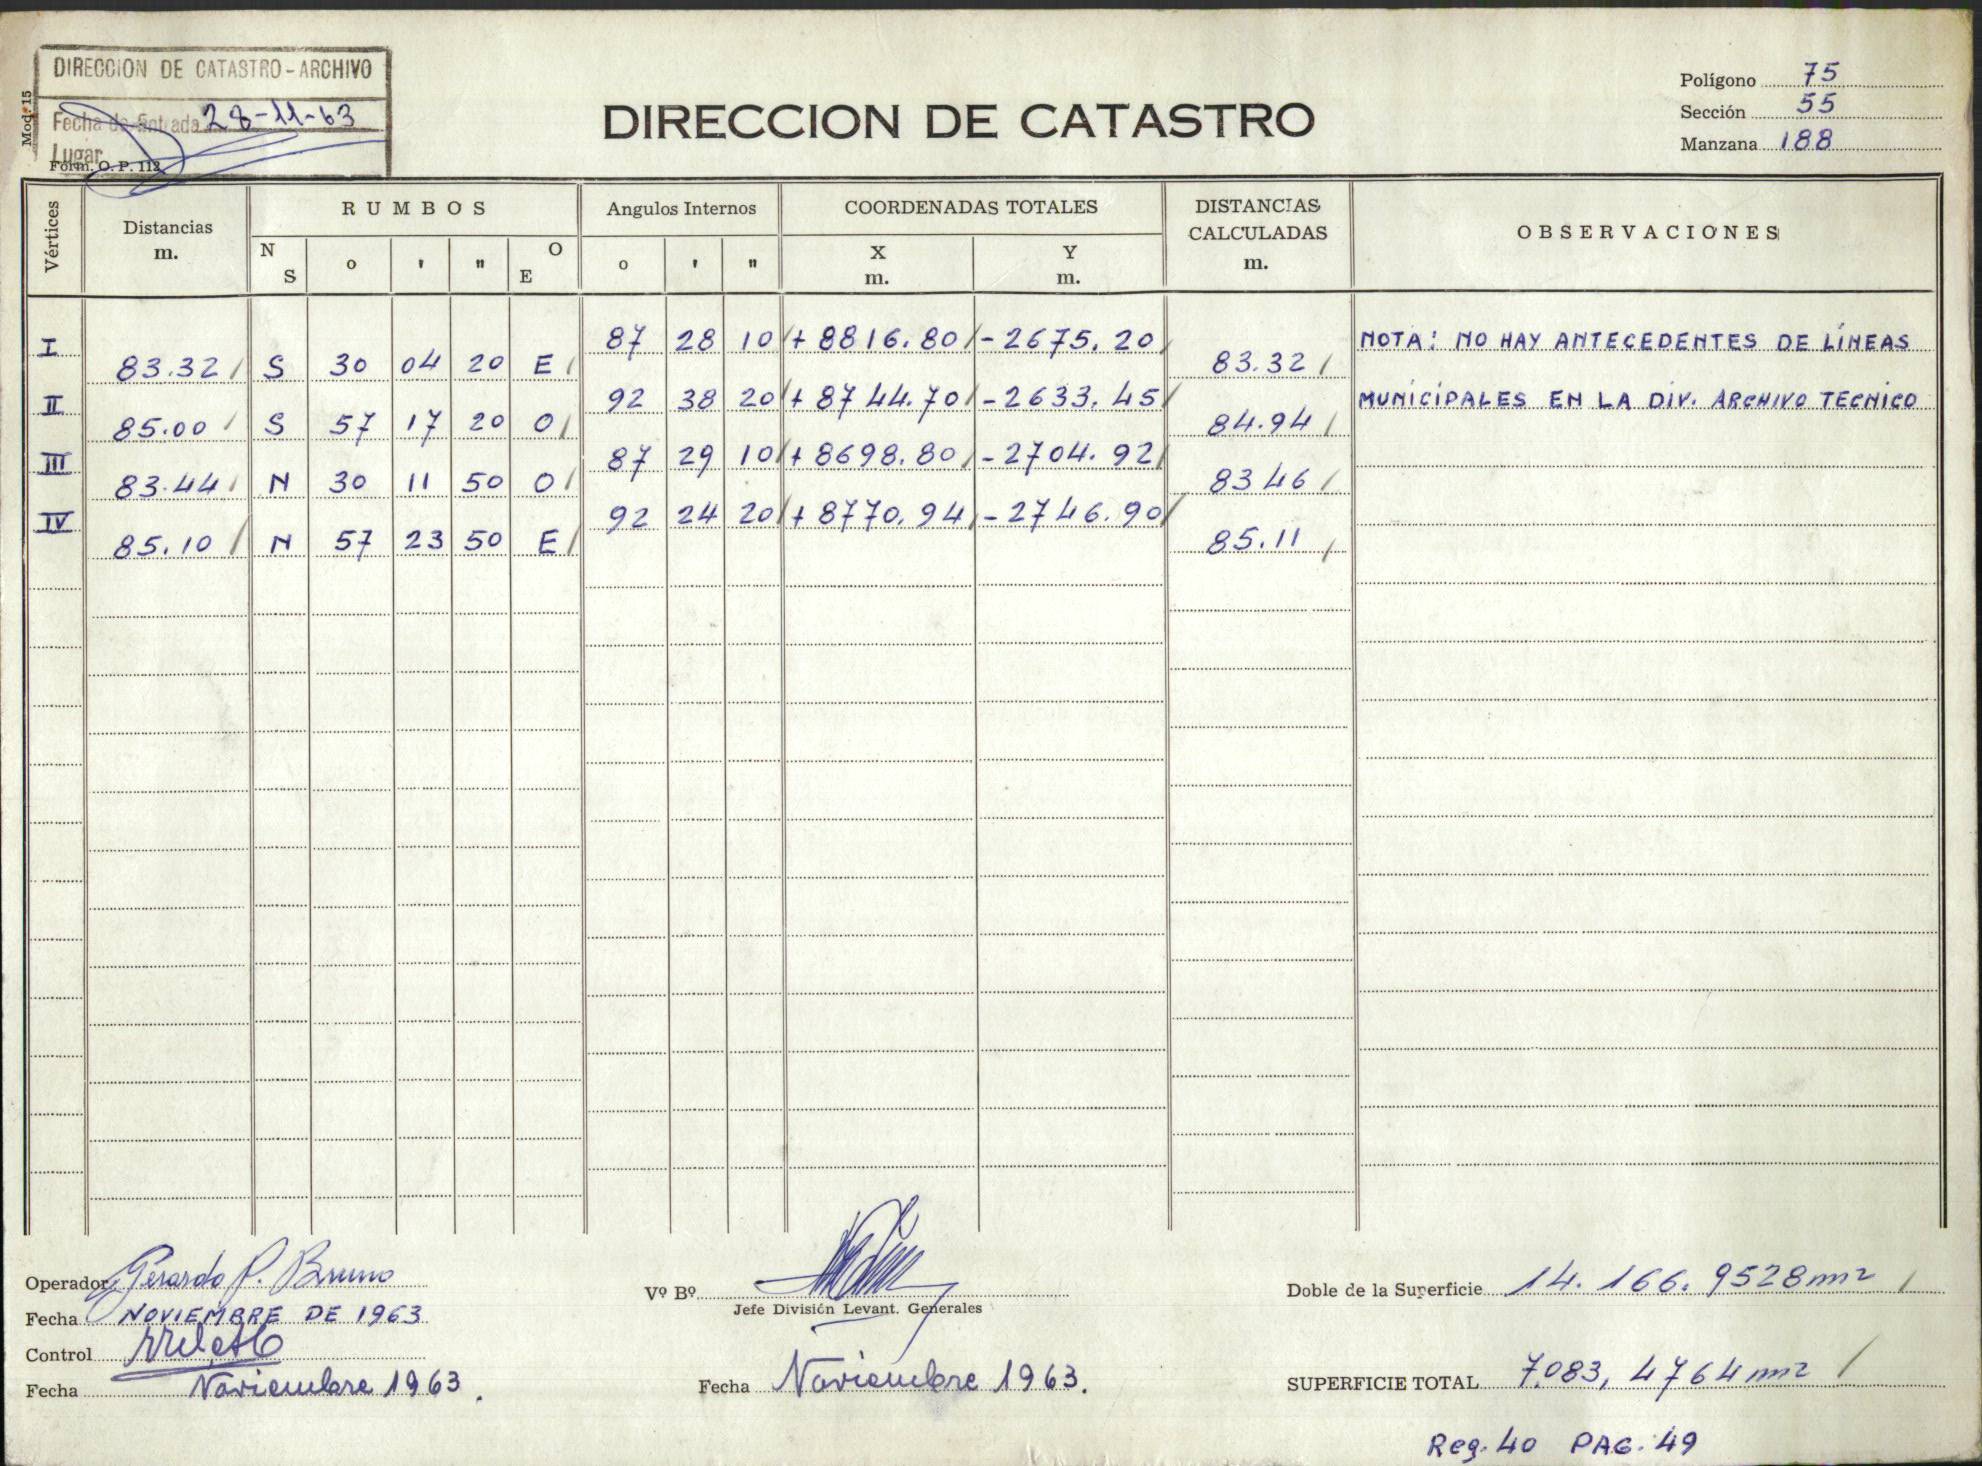 DIRECCION DE CATASTRO - ARCHIVO
Fecha de Entrada 28-11-63
Lugar
Mod. 15
Form. O. P. 112
DIRECCION DE CATASTRO
Polígono 75
Sección 55
Manzana 188
Vértices Distancias m. RUMBOS Angulos Internos COORDENADAS TOTALES DISTANCIAS CALCULADAS m. OBSERVACIONES
N S o ' " O E o ' " X m. Y m.
I 87 28 10 + 8816.80 - 2675.20 NOTA: NO HAY ANTECEDENTES DE LÍNEAS
83.32 S 30 04 20 E 83.32
II 92 38 20 + 8744.70 - 2633.45 MUNICIPALES EN LA DIV. ARCHIVO TECNICO
85.00 S 57 17 20 O 84.94
III 87 29 10 + 8698.80 - 2704.92
83.44 N 30 11 50 O 83 46
IV 92 24 20 + 8770.94 - 2746.90
85.10 N 57 23 50 E 85.11
Operador Gerardo P. Bruno
Fecha NOVIEMBRE DE 1963
Control
Fecha Noviembre 1963.
Vº Bº
Jefe División Levant. Generales
Fecha Noviembre 1963.
Doble de la Superficie 14.166.9528 m²
SUPERFICIE TOTAL 7.083,4764 m²
Reg. 40 PAG. 49